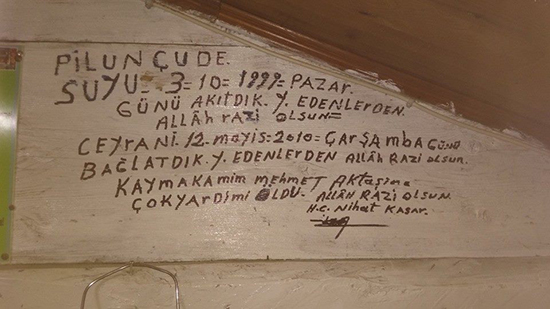 PİLUNÇUDE.
SUYU= 3=10=1999=PAZAR.
GÜNÜ AKITDIK. Y. EDENLERDEN.
ALLÂH RAZİ OLSUN=
CEYRANİ. 12-mayis=2010=ÇARŞAmbA GÜNÜ
BAĞLATDIK. Y. EDENLERDEN ALLÂH RAZİ OLSUN.
KAYMAKAMim MEHMET AKTAŞIMA
ÇOKYARDİMİ OLDU- ALLÂH RAZİ OLSUN.
H.C. Nihat KAŞAR.